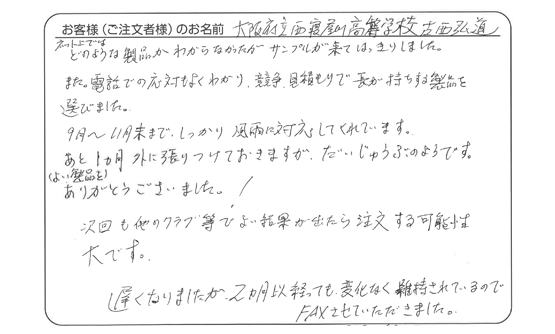 お客様(ご注文者様)のお名前 大阪府立西寝屋川高等学校 古西弘道
ネット上では
どのような製品かわからなかったがサンプルが来てはっきりしました。
また、電話での応対もよくわかり、競争見積もりで長が持ちする製品を
選びました。
9月〜11月末まで、しっかり風雨に対応してくれています。
あと1カ月外に張りつけておきますが、だいじょうぶのようです。
(よい製品を)
ありがとうございました。!
次回も他のクラブ等でよい結果が出たら注文する可能性
大です。
遅くなりましたが、2カ月以経っても、変化なく維持されているので
FAXさせていただきました。